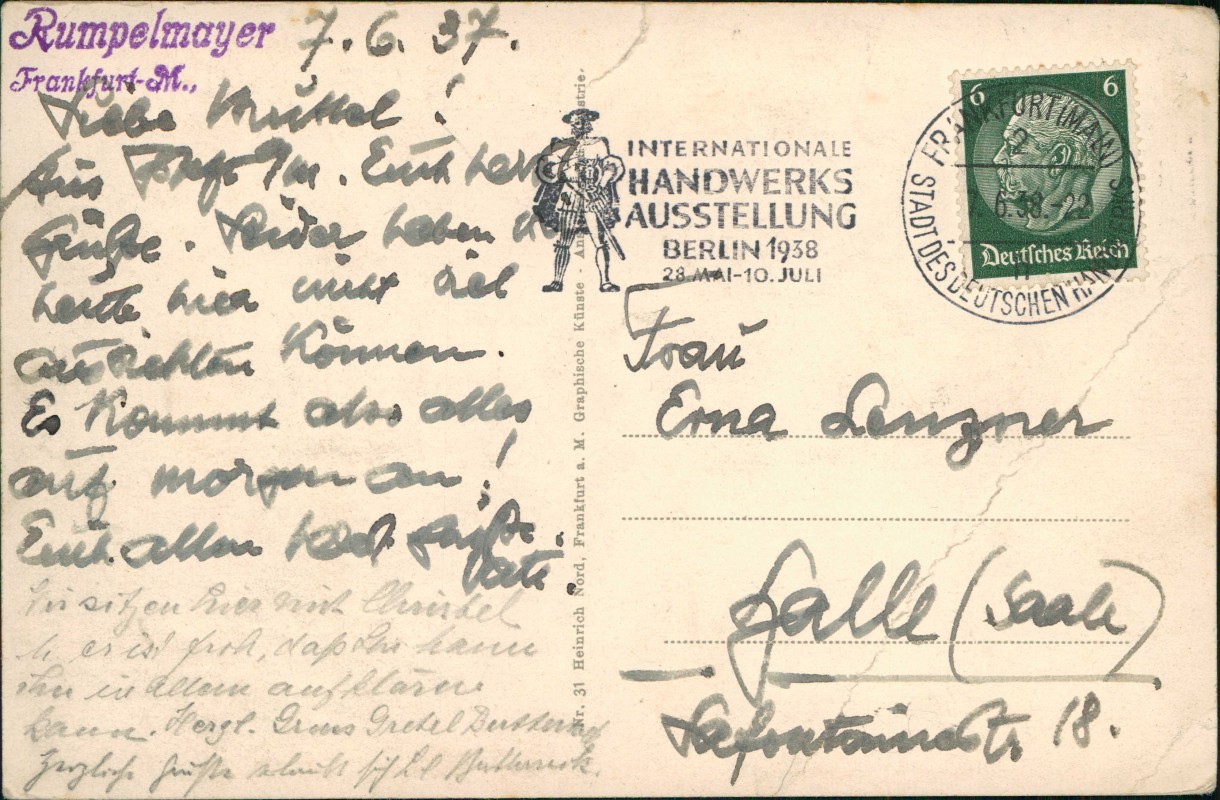 Rumpelmayer
Frankfurt-M.,
7.6.37.
Liebe Muttel!
Aus Frkf. M. Euch herzl
Grüße. Leider haben wir
heute hier nicht viel
ausrichten können.
Es kommt also alles
auf morgen an!
Euch allen herzl Grüße
Vati.
Wir sitzen hier mit Christel
u. er ist froh, daß
ihn in allem aufklären
kann. Herzl. Gruss Gretel
Herzliche Grüße
Nr. 31 Heinrich Nord, Frankfurt a. M. Graphische Künste - Ans industrie.
INTERNATIONALE
HANDWERKS
AUSSTELLUNG
BERLIN 1938
28.MAI-10.JULI
FRANKFURT (MAIN)
2
6.38.-22
STADT DES DEUTSCHEN HANDWERKS
6 6
Deutsches Reich
Frau
Erna Lenzner
Halle (Saale)
Lafontainestr 18.